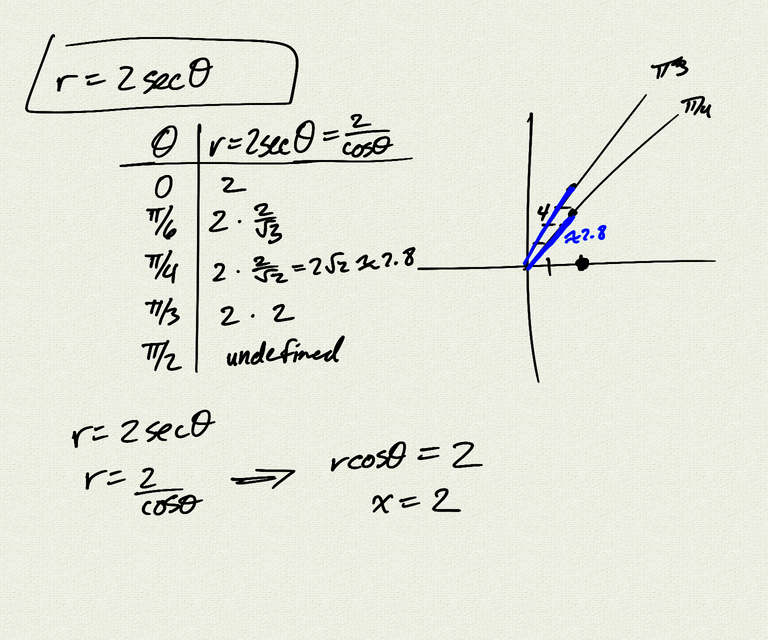 r = 2 sec θ
θ | r = 2 sec θ = 2/cos θ
0 | 2
π/6 | 2 · 2/√3
π/4 | 2 · 2/√2 = 2√2 ≈ 2.8
π/3 | 2 · 2
π/2 | undefined
π/3
π/4
4
≈2.8
1
r = 2 sec θ
r = 2/cos θ ⟹ r cos θ = 2
x = 2